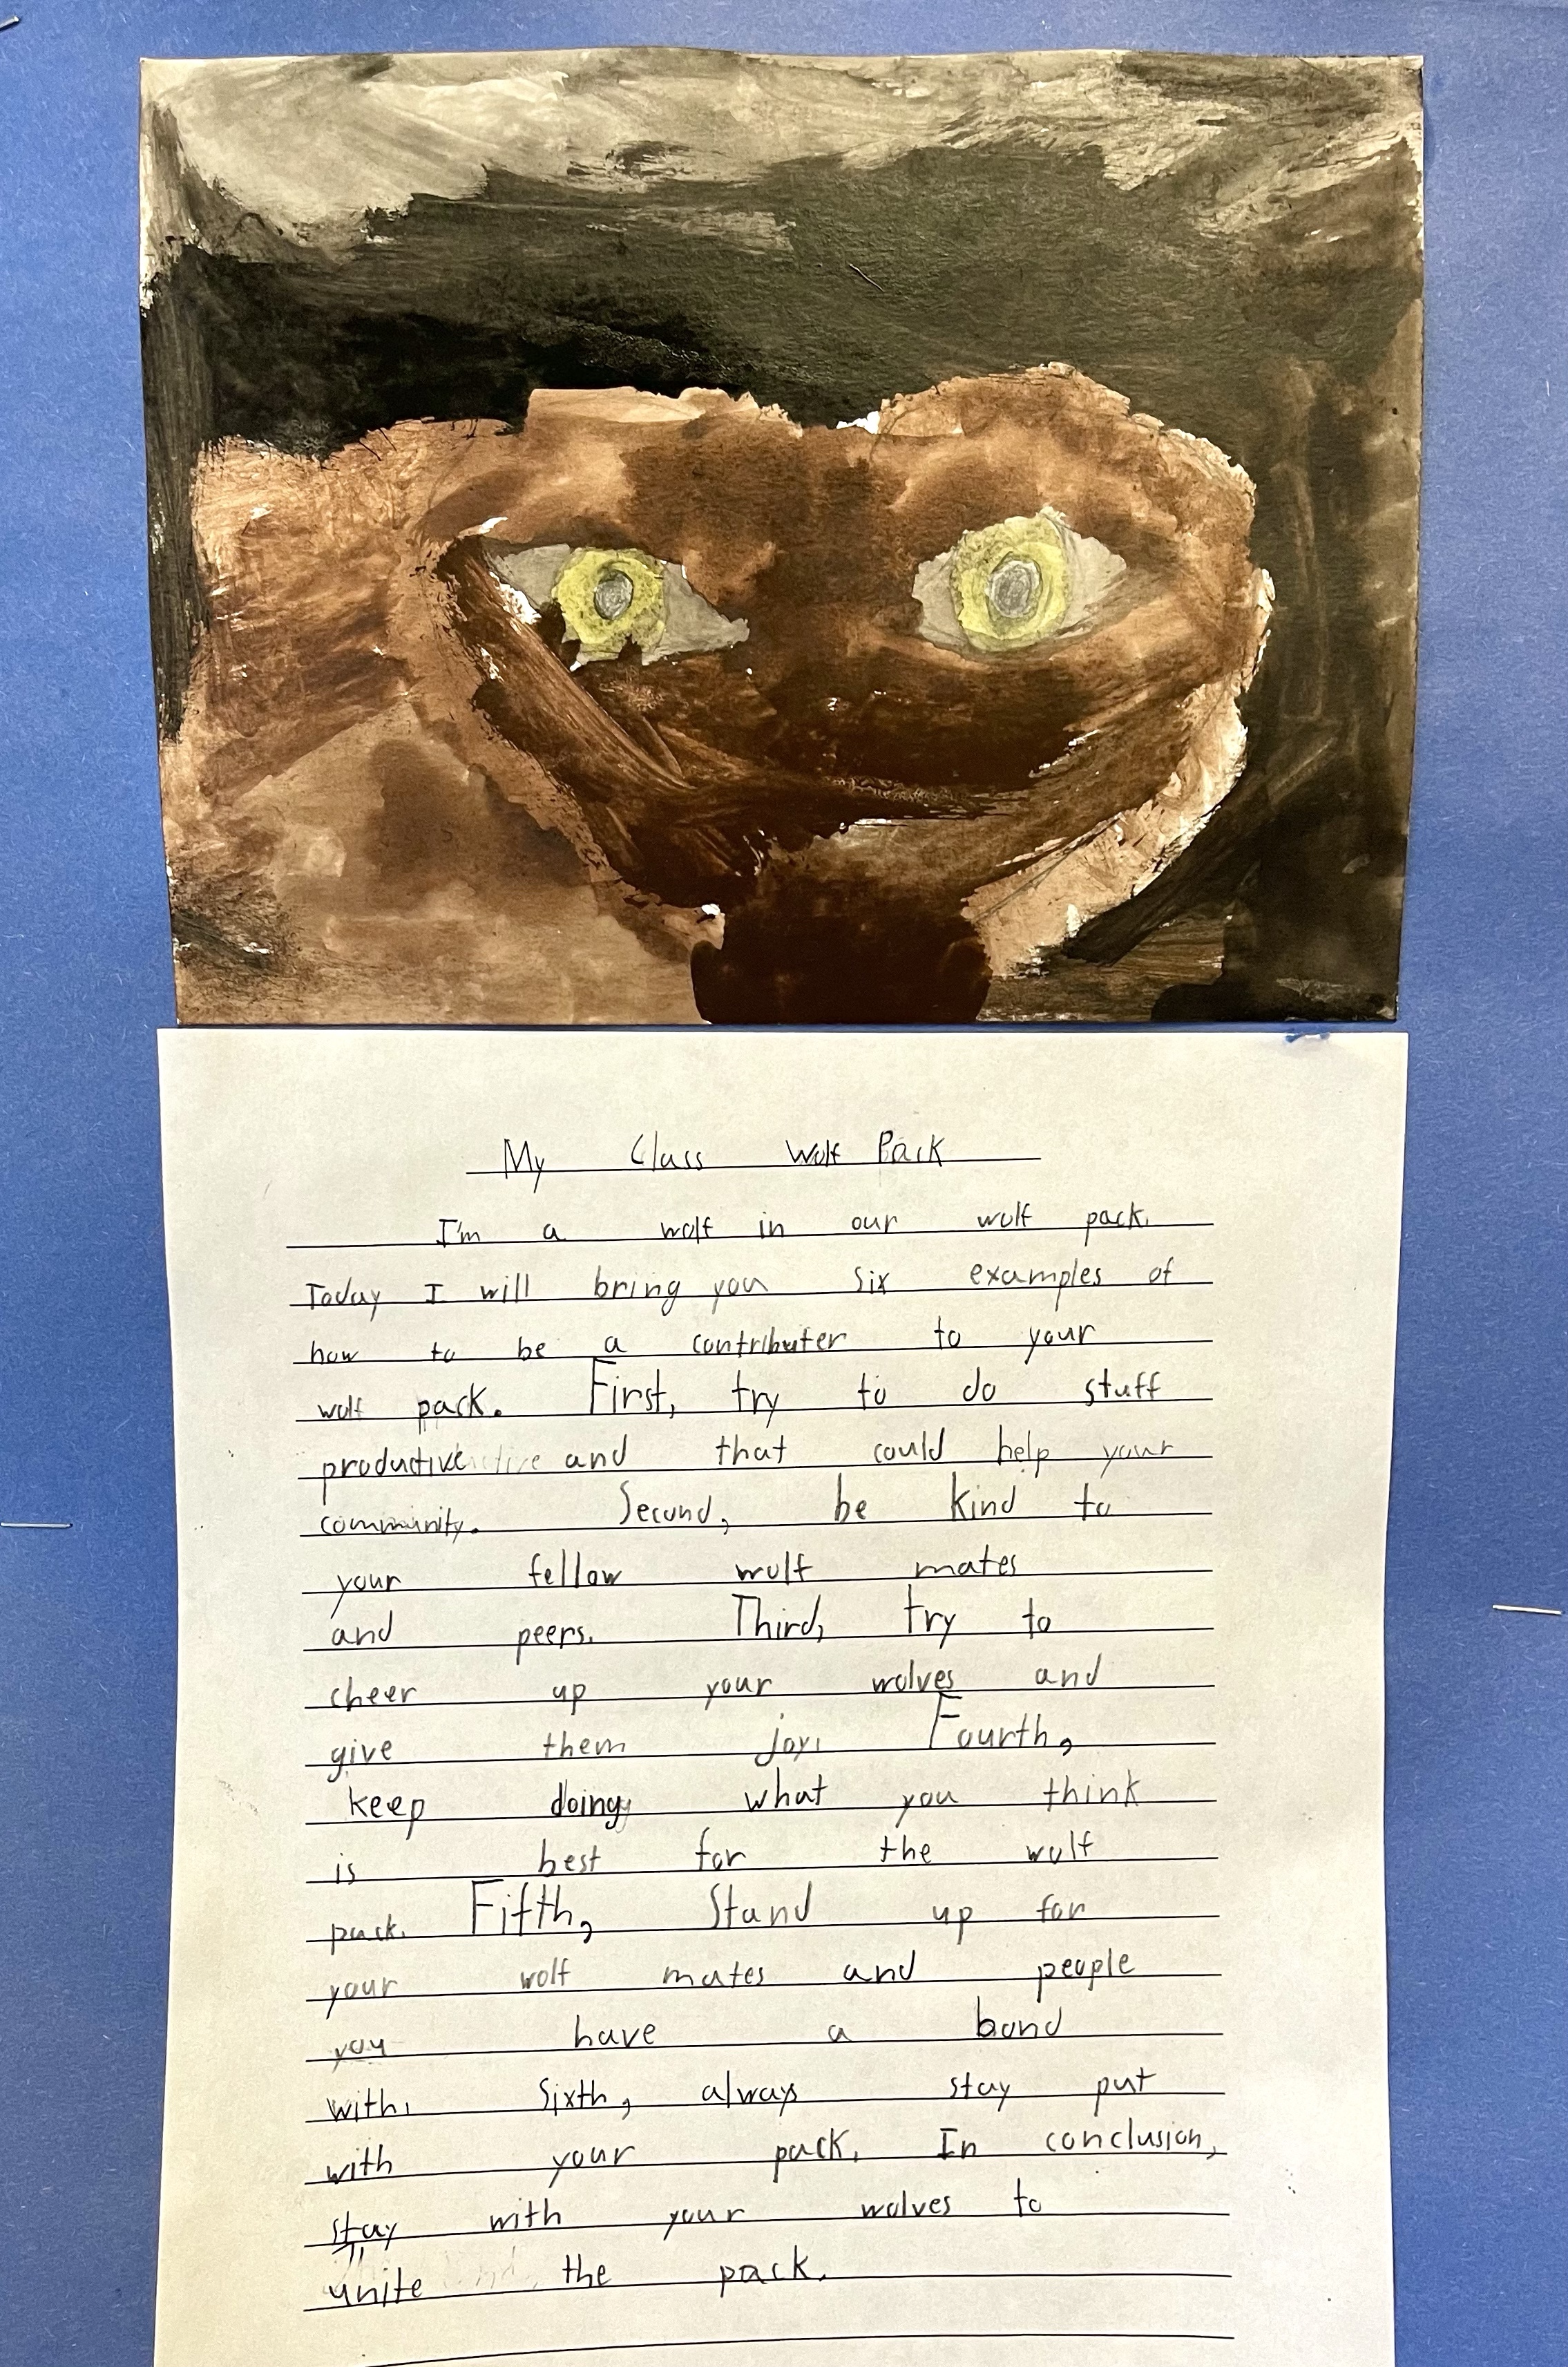 My Class Wolf Pack
I'm a wolf in our wolf pack.
Today I will bring you six examples of
how to be a contributer to your
wolf pack. First, try to do stuff
productive and that could help your
community. Second, be kind to
your fellow wolf mates
and peers. Third, try to
cheer up your wolves and
give them joy. Fourth,
keep doing what you think
is best for the wolf
pack. Fifth, Stand up for
your wolf mates and people
you have a bond
with. Sixth, always stay put
with your pack. In conclusion,
stay with your wolves to
unite the pack.